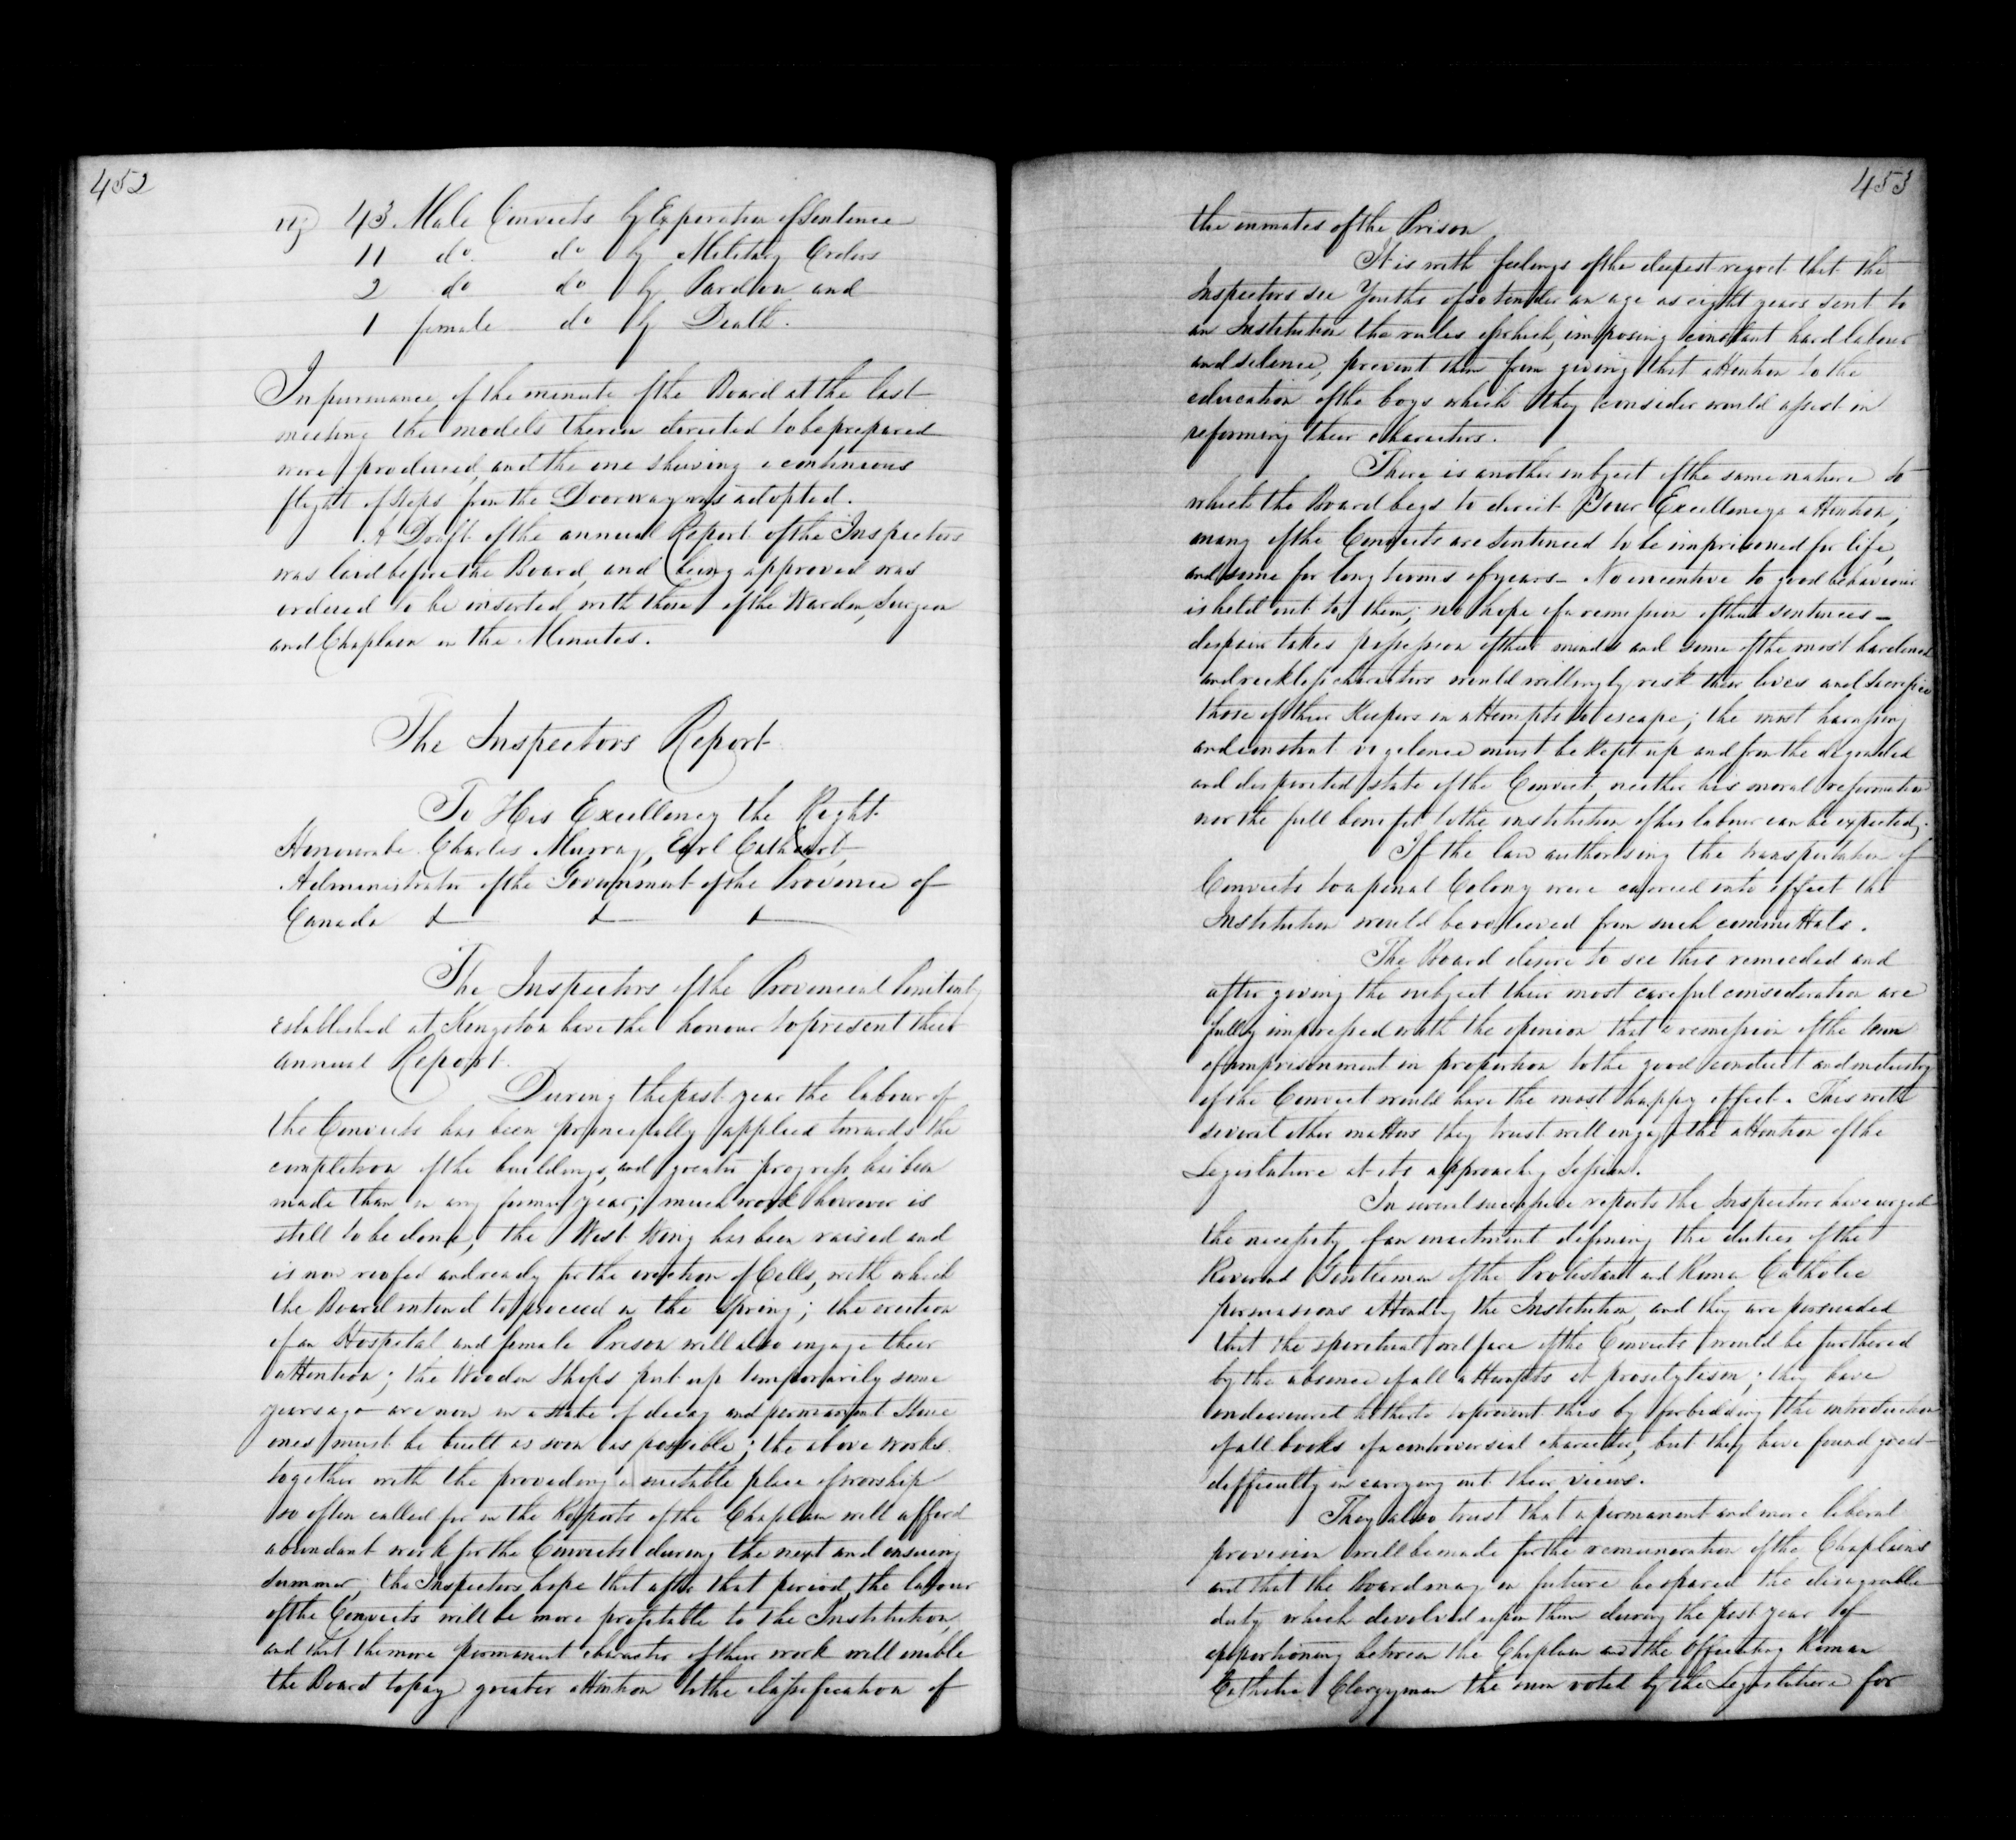 452
viz 43 Male Convicts by Experation of Sentence
11 do. do by Military Orders
2 do do by Pardon and
1 female do by Death.
In pursuance of the minute of the Board at the last
meeting the models therein directed to be prepared
were produced, and the one shewing a continuous
flight of steps from the Doorway was adopted.
A Draft of the annual Report of the Inspectors
was laid before the Board, and being approved was
ordered to be inserted with those of the Warden, Surgeon
and Chaplain in the Minutes.
The Inspectors Report
To His Excellency the Right
Honourable Charles Murray, Earl Cathcart,
Administrator of the Government of the Province of
Canada & & &
The Inspectors of the Provincial Penitenty
Established at Kingston have the honour to present their
annual Report.
During the past year the labour of
the Convicts has been principally applied towards the
completion of the buildings, and greater progress has been
made than in any former year; much work however is
still to be done, the West Wing has been raised and
is now roofed and ready for the erection of Cells, with which
the Board intend to proceed in the Spring; the erection
of an Hospital and female Prison will also engage their
attention; the Wooden Shops put up temporarily some
years ago are now in a state of decay and permanent Stone
ones must be built as soon as possible; the above works
together with the providing a suitable place of worship
so often called for in the Reports of the Chaplain will afford
abundant work for the Convicts during the next and ensuing
Summer; the Inspectors hope that after that period, the labour
of the Convicts will be more profitable to the Institution,
and that the more permanent character of their work will enable
the Board to pay greater attention to the classification of
453
the inmates of the Prison
It is with feelings of the deepest regret that the
Inspectors see Youths of so tender an age as eight years sent to
an Institution the rules of which, imposing constant hard labour
and silence, prevent them from giving that attention to the
education of the boys which they consider would assist in
reforming their characters.
There is another subject of the same nature to
which the Board begs to direct Your Excellencys attention;
many of the Convicts are sentenced to be imprisoned for life,
and some for long terms of years – No incentive to good behaviour
is held out to them; no hope of a remission of their sentences –
despair takes possession of their minds and some of the most hardened
and reckless characters would willingly risk their lives and sacrifice
those of their Keepers in attempts to escape; the most harassing
and constant vigilence must be kept up and from the degraded
and dispirited state of the Convict, neither his moral reformation
nor the full benefit to the institution of his labour can be expected.
If the law authorising the transportation of
Convicts to a penal Colony were carried into effect the
Institution would be relieved from such committals.
The Board desire to see this remedied and
after giving the subject their most careful consideration are
fully impressed with the opinion that a remission of the term
of imprisonment in proportion to the good conduct and industry
of the Convict would have the most happy effect. This with
several other matters they trust will engage the attention of the
Legislature at its approachg Session.
In several successive reports the Inspectors have urged
the necessity of an enactment defining the duties of the
Reverend Gentlemen of the Protestant and Roman Catholic
persuasions attending the Institution, and they are persuaded
that the spiritual welfare of the Convicts would be furthered
by the absence of all attempts at proselytism; they have
endeavoured hitherto to prevent this by forbidding the introduction
of all books of a controversial character, but they have found great
difficulty in carrying out their views.
They also trust that a permanent and more liberal
provision will be made for the remuneration of the Chaplains
and that the Board may in future be spared the disagreeable
duty which devolved upon them during the past year of
apportioning between the Chaplain and the Officiating Roman
Catholic Clergyman the sum voted by the Legislature for